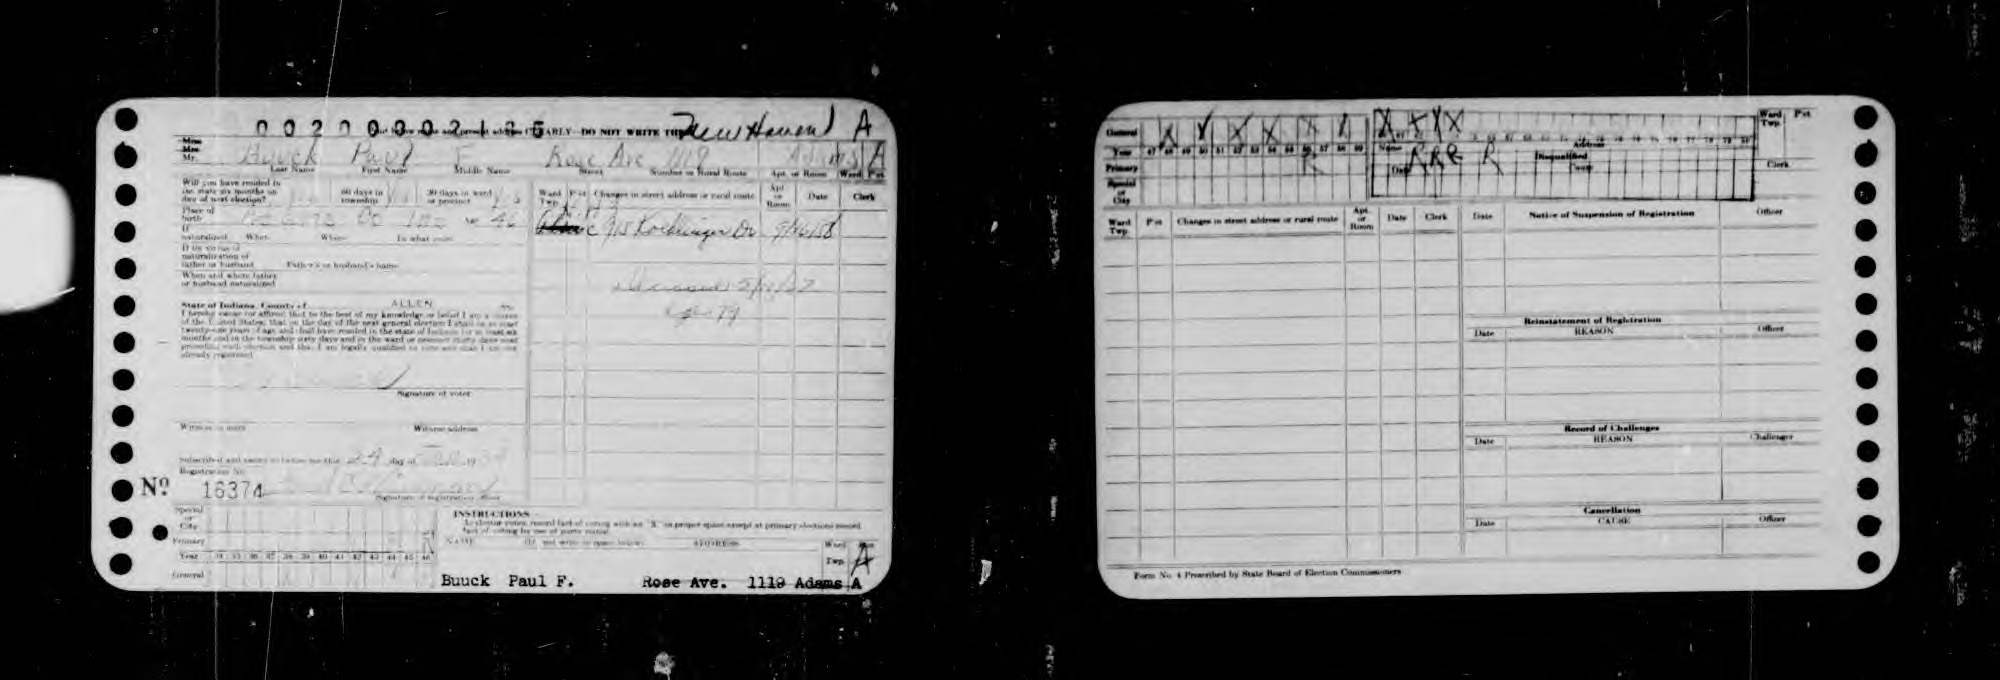 00200002125
DO NOT WRITE New Haven A
Miss
Mrs.
Mr. Buuck Paul F Rose Ave 1119 Adams A
Last Name First Name Middle Name Street Number or Rural Route Apt. or Room Ward Pct
Will you have resided in
the state six months on
day of next election? 60 days in
township 30 days in ward
or precinct
Ward
Twp. Pct Changes in street address or rural route Apt
or
Room Date Clerk
Place of
birth Adams Co Ind
C 915 Koehlinger Dr 9/26/58
If
naturalized When Where In what court
If by virtue of
naturalization of
father or husband Father's or husband's name
When and where father
or husband naturalized
Deceased
age 79
State of Indiana, County of ALLEN ss:
I hereby swear (or affirm) that to the best of my knowledge or belief I am a citizen
of the United States; that on the day of the next general election I shall be at least
twenty-one years of age and shall have resided in the state of Indiana for at least six
months and in the township sixty days and in the ward or precinct thirty days next
preceding such election and that I am legally qualified to vote and that I am not
already registered
Signature of voter
Witness to mark Witness address
Subscribed and sworn to before me this 24 day of
Registration No.
Nº 16374
Signature of registration officer
Special
or
City
Primary
Year 34 35 36 37 38 39 40 41 42 43 44 45 46
General
INSTRUCTIONS
As elector votes, record fact of voting with an "X" in proper space except at primary elections record
fact of voting by use of party initial.
NAME Do not write in space below ADDRESS Ward
Twp. Pct
A
Buuck Paul F. Rose Ave. 1119 Adams A
General X X X X X X X X X X
Year 47 48 49 50 51 52 53 54 55 56 57 58 59
Primary R R R R
Special
or
City
Name Address
Disqualified
Date Court
Ward
Twp. Pct
Clerk
Ward
Twp. Pct Changes in street address or rural route Apt.
or
Room Date Clerk
Date Notice of Suspension of Registration Officer
Reinstatement of Registration
Date REASON Officer
Record of Challenges
Date REASON Challenger
Cancellation
Date CAUSE Officer
Form No. 4 Prescribed by State Board of Election Commissioners